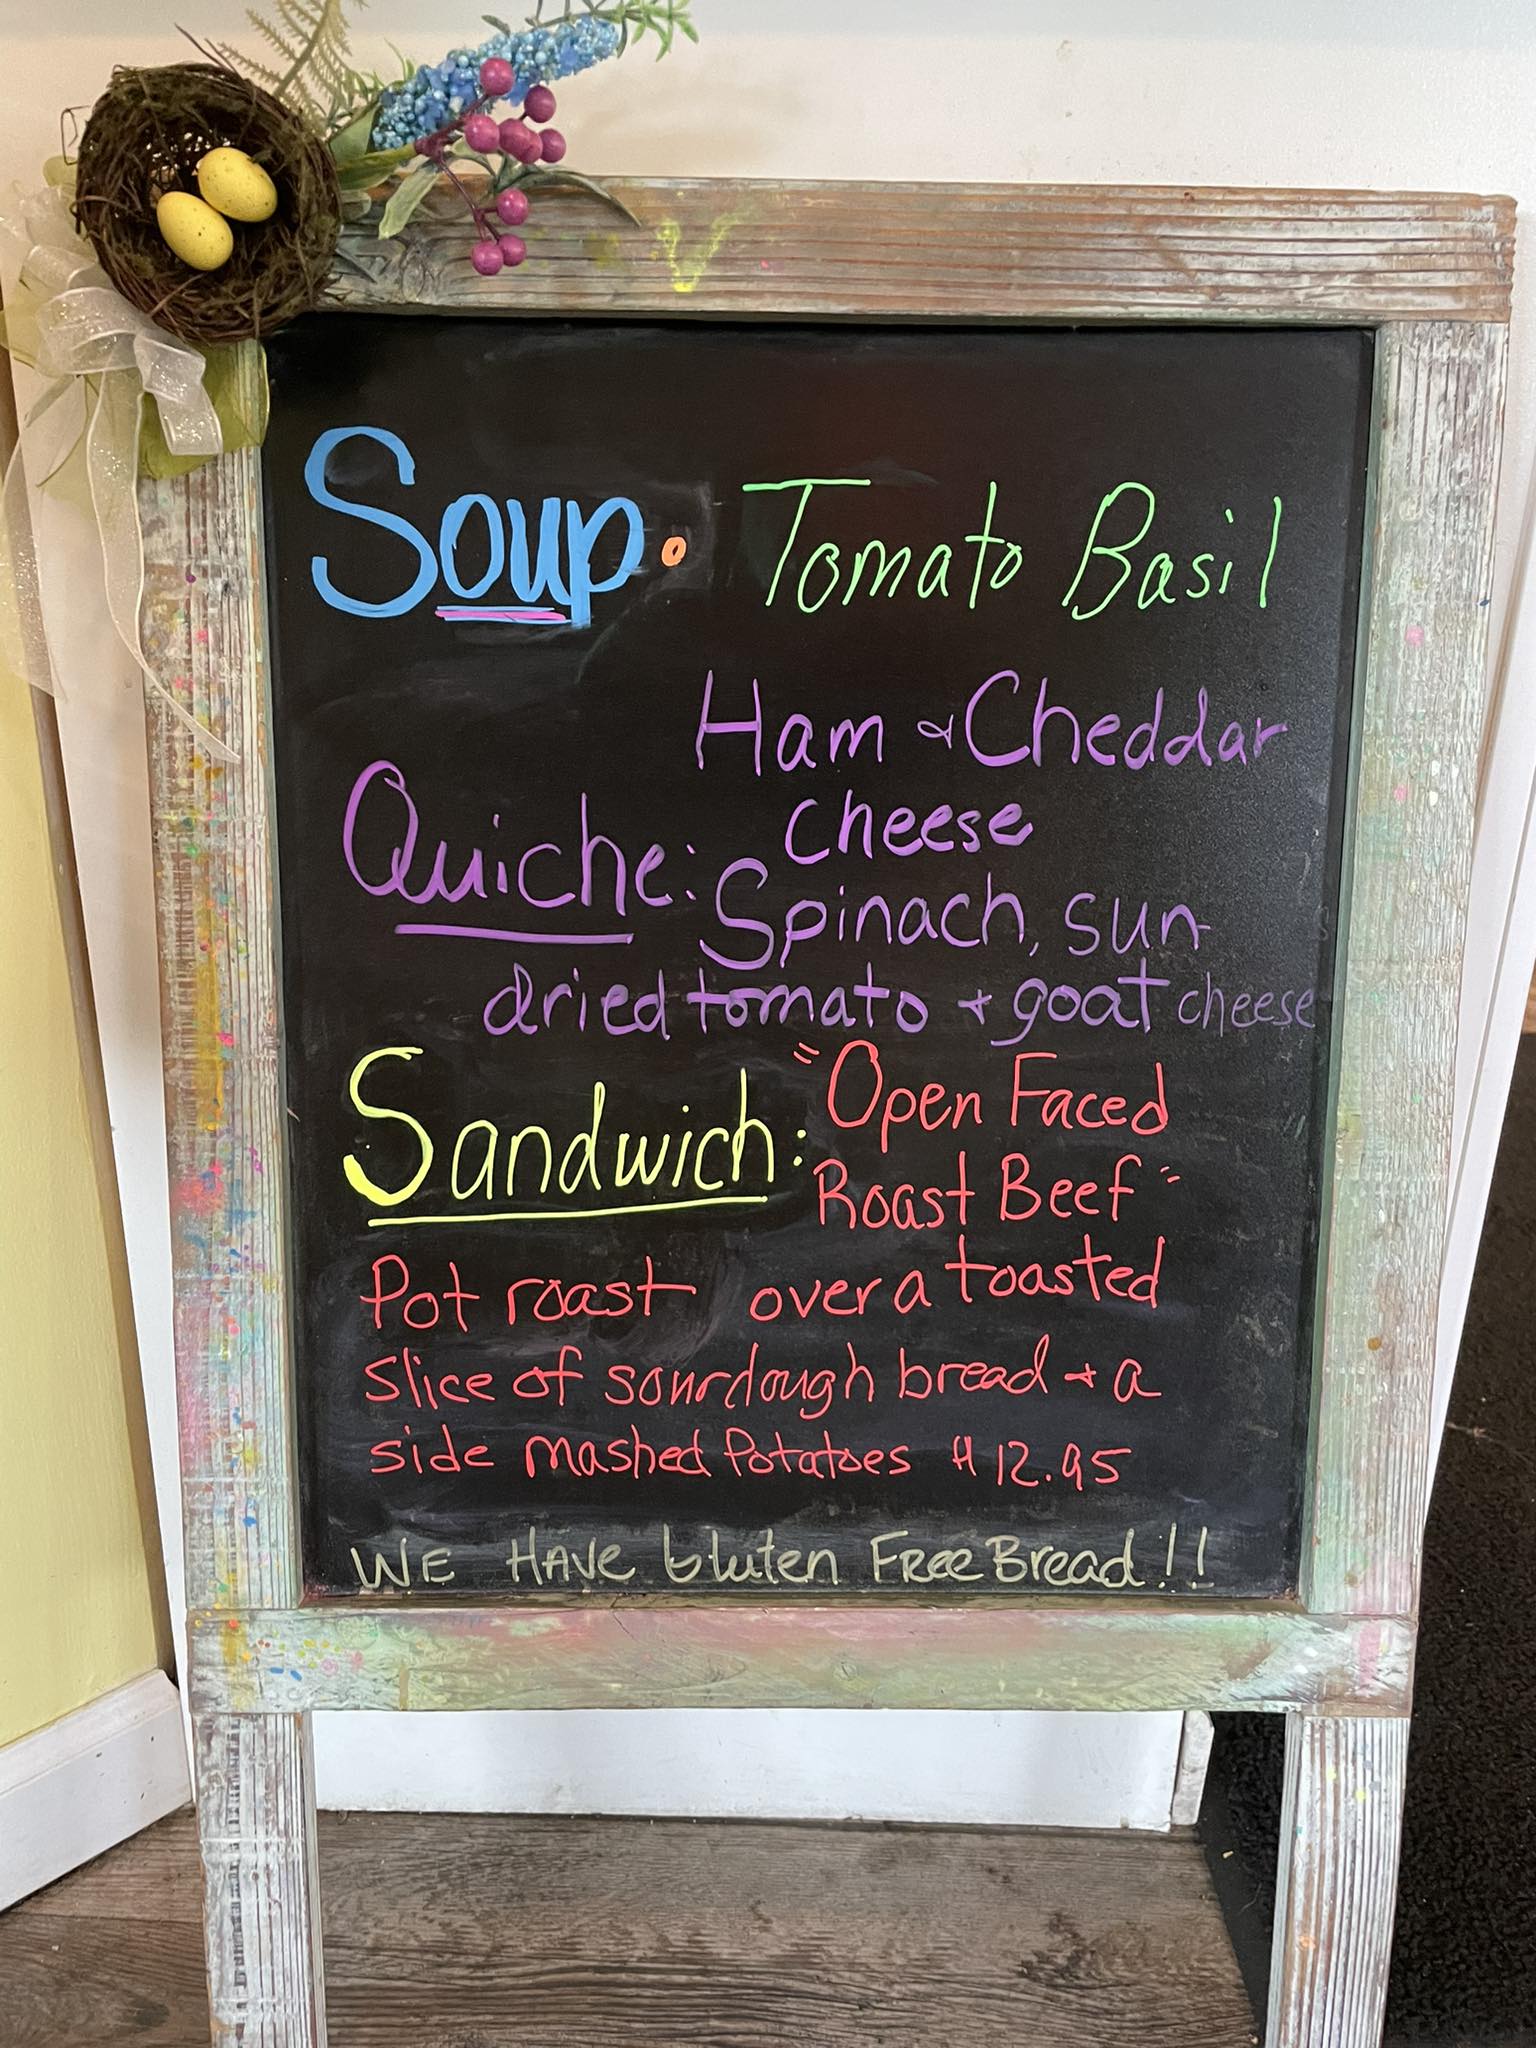 Soup. Tomato Basil
Ham & Cheddar
cheese
Quiche: Spinach, sun-
dried tomato & goat cheese
Sandwich: "Open Faced
Roast Beef"
Pot roast over a toasted
slice of sourdough bread & a
side mashed Potatoes $12.95
WE HAVE Gluten FREE Bread!!